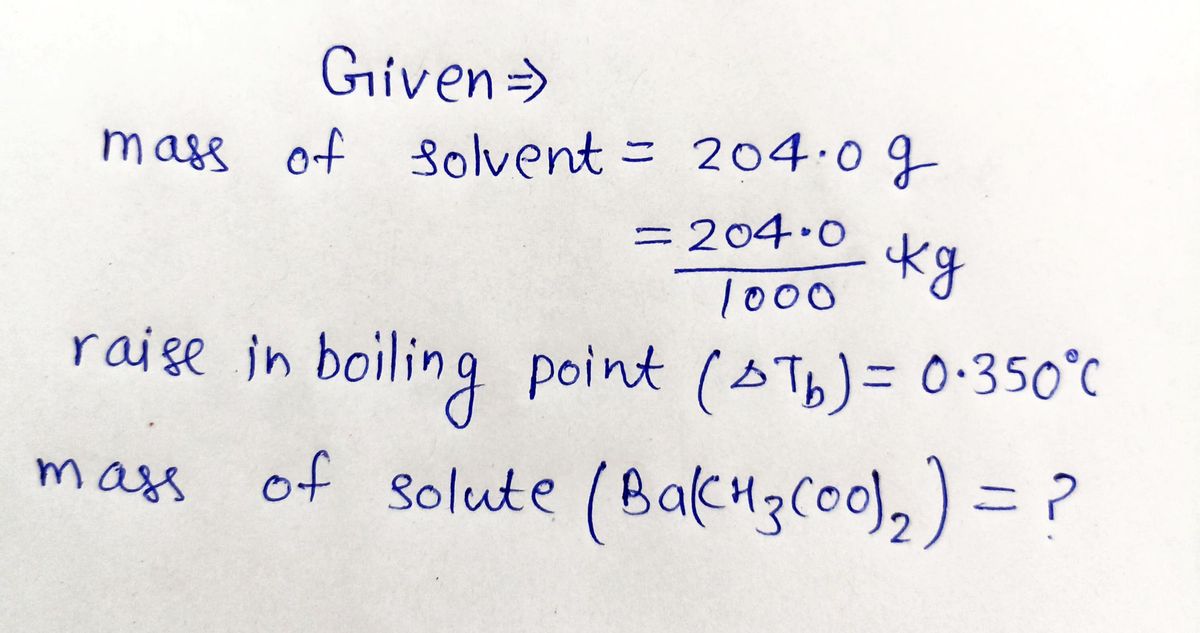 Given ⇒
mass of solvent = 204.0 g
= 204.0/1000 kg
raise in boiling point (ΔTb) = 0.350°C
mass of solute (Ba(CH3COO)2) = ?